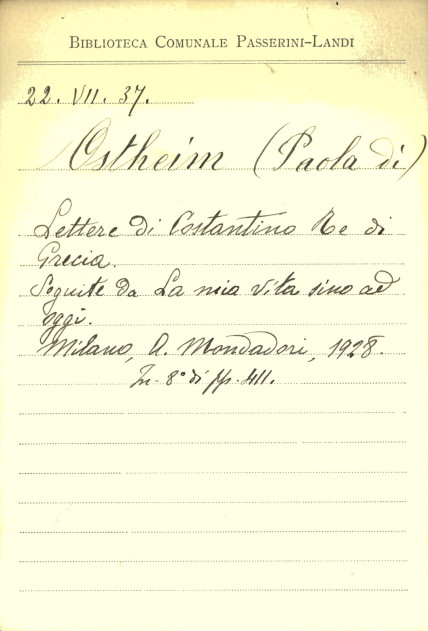 BIBLIOTECA COMUNALE PASSERINI-LANDI
22. VII. 37.
Ostheim (Paola di)
Lettere di Costantino Re di
Grecia.
Seguite da La mia vita sino ad
oggi.
Milano, A. Mondadori, 1928.
In-8° di pp. 411.